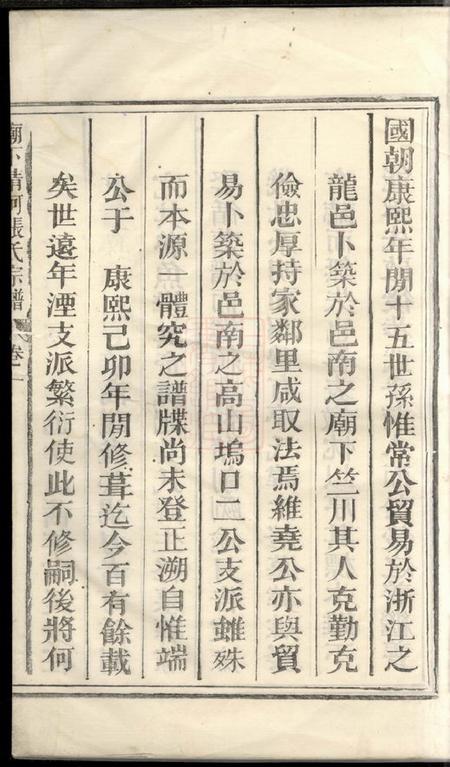 國朝康熙年閒十五世孫惟常公貿易於浙江之
龍邑卜築於邑南之廟下竺川其人克勤克
儉忠厚持家鄰里咸取法焉維堯公亦與貿
易卜築於邑南之高山塢口二公支派雖殊
而本源一體究之譜牒尚未登正溯自惟端
公于　康熙己卯年閒修葺迄今百有餘載
矣世遠年湮支派繁衍使此不修嗣後將何
廟下清河張氏宗譜　卷一